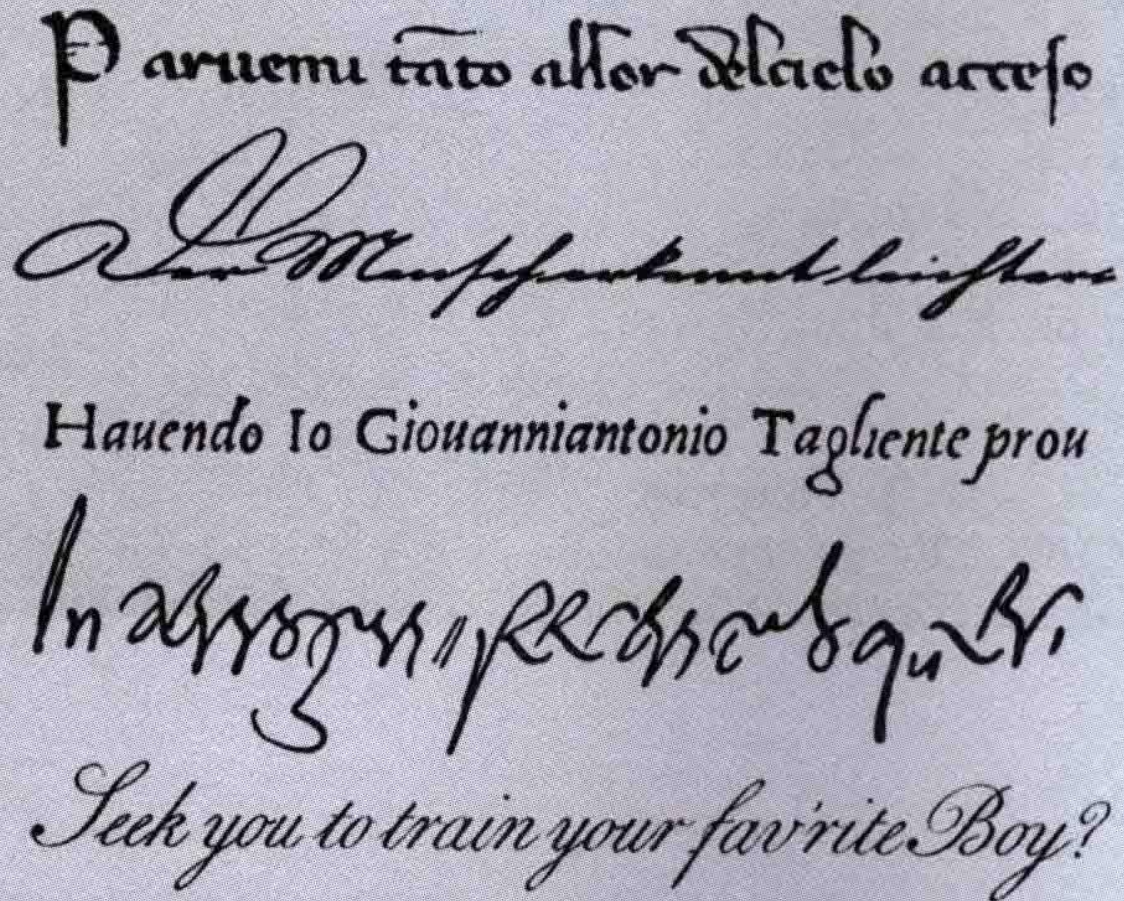 Paruemi tãto allor del cielo acceso
Der Mensch erkennt leichter
Hauendo Io Giouanniantonio Tagliente prou
In
Seek you to train your fav'rite Boy?